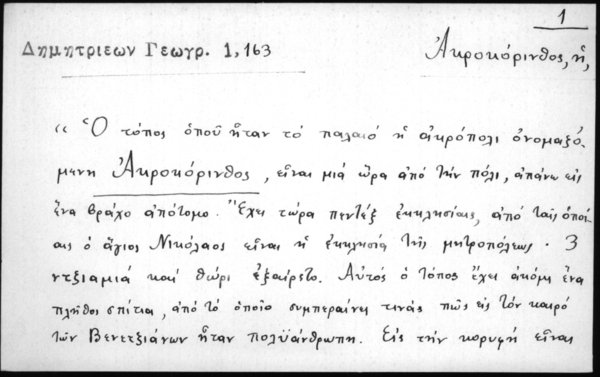 1
Δημητριεων Γεωγρ. 1, 163
Ἀκροκόρινθος, ἡ,
« Ὁ τόπος ὁποῦ ἦταν τὸ παλαιό ἡ ἀκρόπολι ὀνομαζό-
μενη Ἀκροκόρινθος, εἶναι μιά ὥρα ἀπό τὴν πόλι, ἀπάνω εἰς
ἕνα βράχο ἀπότομο. Ἔχει τώρα πεντέξ ἐκκλησίαις, ἀπό ταῖς ὁποί-
αις ὁ ἅγιος Νικόλαος εἶναι ἡ ἐκκλησία τῆς μητροπόλεως. 3
ντζιαμιά καί θωρι ἐξαίρετο. Αὐτός ὁ τόπος ἔχει ἀκόμη ἕνα
πλῆθος σπίτια, ἀπό τὸ ὁποῖο συμπεραίνει τινάς πῶς εἰς τὸν καιρό
τῶν Βενετζιάνων ἦταν πολυάνθρωπη. Εἰς τὴν κορυφή εἶναι